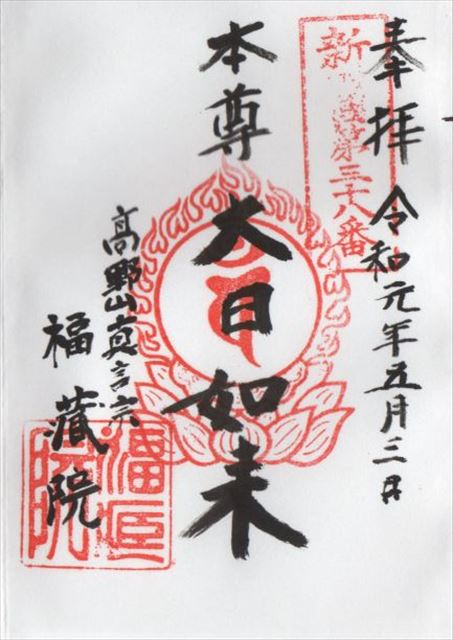 奉拝 令和元年五月三日
新四国霊場第三十八番
本尊 大日如来
高野山真言宗
福蔵院
福蔵院